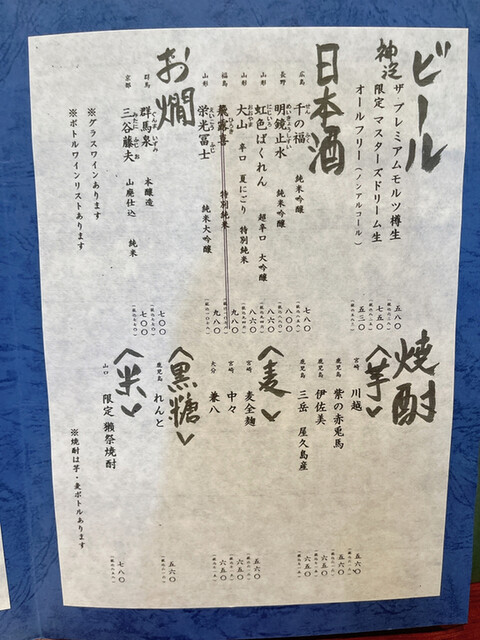 ビール
神泡
ザ プレミアムモルツ樽生 五八〇
限定 マスターズドリーム生 七五〇
オールフリー(ノンアルコール) 五三〇
日本酒
広島 千の福 純米吟醸 七八〇
長野 明鏡止水 純米吟醸 八〇〇
山形 虹色ばくれん 超辛口 大吟醸 八六〇
山形 大山 辛口 夏にごり 特別純米 八六〇
福島 飛露喜 特別純米 九八〇
山形 栄光冨士 純米大吟醸 九八〇
お燗
群馬 群馬泉 本醸造 七〇〇
京都 三谷藤夫 山廃仕込 純米 七〇〇
※グラスワインあります
※ボトルワインリストあります
焼酎
〈芋〉
宮崎 川越 五六〇
鹿児島 紫の赤兎馬 五六〇
鹿児島 伊佐美 六五〇
鹿児島 三岳 屋久島産 六五〇
〈麦〉
宮崎 麦全麹 五六〇
宮崎 中々 六五〇
大分 兼八 六五〇
〈黒糖〉
鹿児島 れんと 五六〇
〈米〉
山口 限定 獺祭焼酎 七八〇
※焼酎は芋・麦ボトルあります